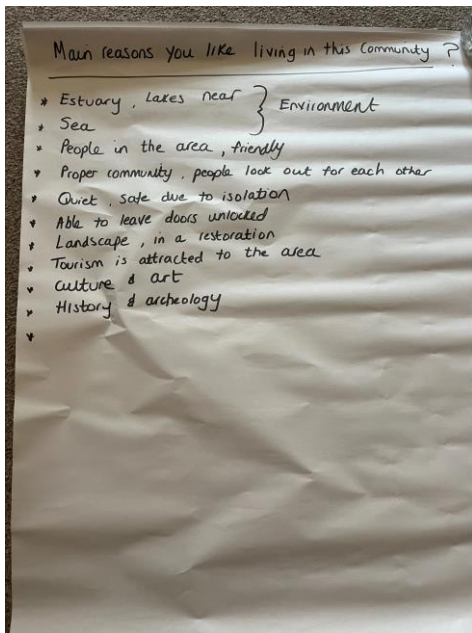 Main reasons you like living in this Community ?
* Estuary, Lakes near } Environment
* Sea
* People in the area, friendly
* Proper community, people look out for each other
* Quiet, safe due to isolation
* Able to leave doors unlocked
* Landscape, in a restoration
* Tourism is attracted to the area
* Culture & art
* History & archeology
*